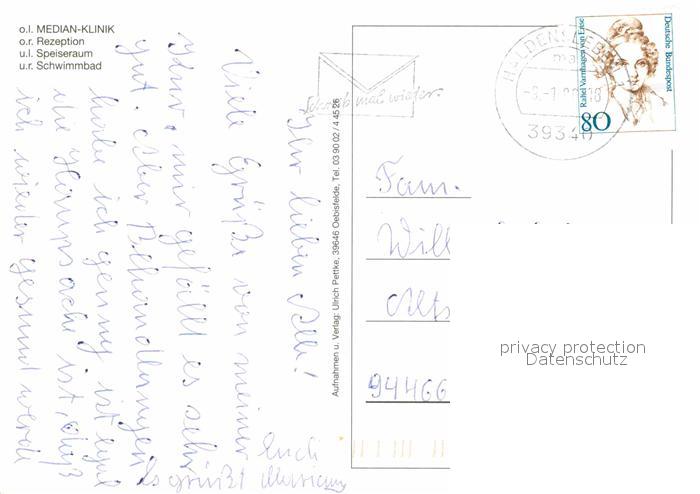 o.l. MEDIAN-KLINIK
o.r. Rezeption
u.l. Speiseraum
u.r. Schwimmbad
Ihr lieben Alle!
Viele Grüße von meiner
Kur, mir gefällt es sehr
gut. Aber Behandlungen
habe ich genug ist egal
die Haupsache ist, daß
ich wieder gesund werde
Es grüßt Euch
Aufnahmen u. Verlag: Ulrich Pettke, 39646 Oebisfelde, Tel. 03 90 02 / 4 45 26
Schreib mal wieder.
HALDENSLEBEN
39340
Rahel Varnhagen von Ense
Deutsche Bundespost
80
Fam.
Will
94466
privacy protection
Datenschutz